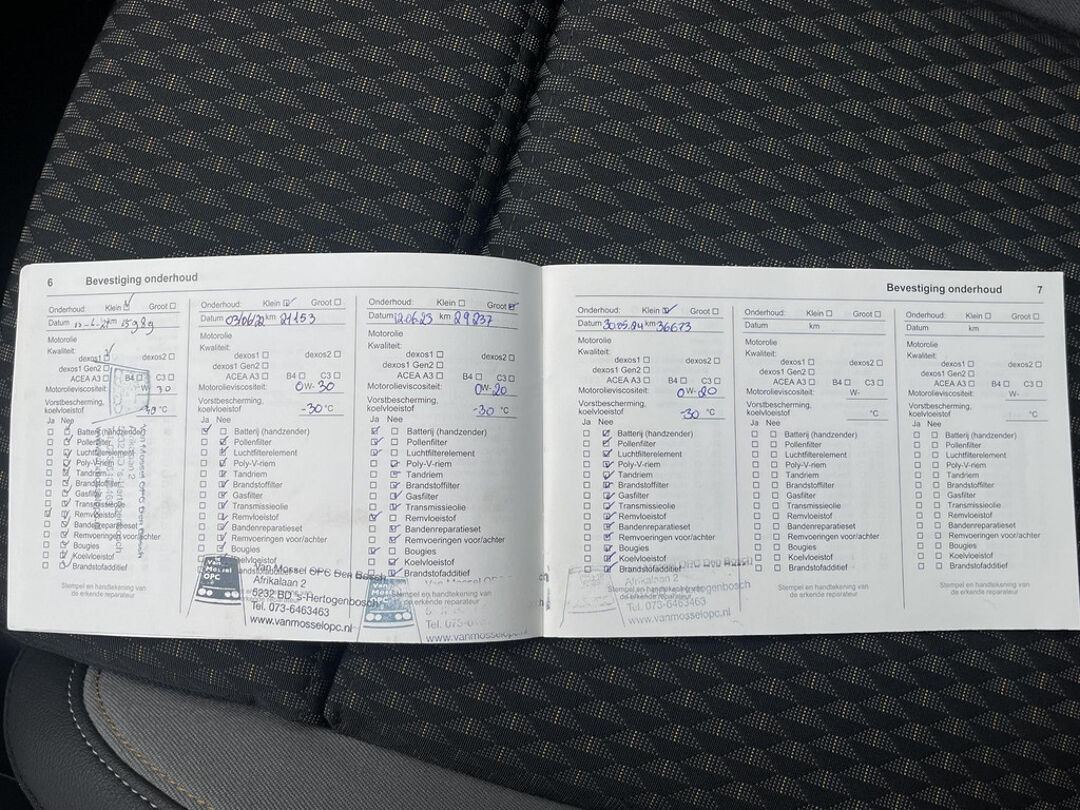 6 Bevestiging onderhoud
Onderhoud: Klein Groot
Datum km
Motorolie
Kwaliteit:
dexos1 dexos2
dexos1 Gen2
ACEA A3 B4 C3
Motorolieviscositeit: W- 30
Vorstbescherming,
koelvloeistof °C
Ja Nee
Batterij (handzender)
Pollenfilter
Luchtfilterelement
Poly-V-riem
Tandriem
Brandstoffilter
Gasfilter
Transmissieolie
Remvloeistof
Bandenreparatieset
Remvoeringen voor/achter
Bougies
Koelvloeistof
Brandstofadditief
Onderhoud: Klein Groot
Datum 03/06/22 km 21153
Motorolie
Kwaliteit:
dexos1 dexos2
dexos1 Gen2
ACEA A3 B4 C3
Motorolieviscositeit: 0W-30
Vorstbescherming,
koelvloeistof -30 °C
Ja Nee
Batterij (handzender)
Pollenfilter
Luchtfilterelement
Poly-V-riem
Tandriem
Brandstoffilter
Gasfilter
Transmissieolie
Remvloeistof
Bandenreparatieset
Remvoeringen voor/achter
Bougies
Koelvloeistof
Brandstofadditief
Van Mossel OPC
Van Mossel OPC Den Bosch
Afrikalaan 2
5232 BD 's-Hertogenbosch
Tel. 073-6463463
www.vanmosselopc.nl
Onderhoud: Klein Groot
Datum 12.06.23 km 29237
Motorolie
Kwaliteit:
dexos1 dexos2
dexos1 Gen2
ACEA A3 B4 C3
Motorolieviscositeit: 0W-20
Vorstbescherming,
koelvloeistof -30 °C
Ja Nee
Batterij (handzender)
Pollenfilter
Luchtfilterelement
Poly-V-riem
Tandriem
Brandstoffilter
Gasfilter
Transmissieolie
Remvloeistof
Bandenreparatieset
Remvoeringen voor/achter
Bougies
Koelvloeistof
Brandstofadditief
Stempel en handtekening van
de erkende reparateur
www.vanmosselopc
Bevestiging onderhoud 7
Onderhoud: Klein Groot
Datum 30.05.24 km 36673
Motorolie
Kwaliteit:
dexos1 dexos2
dexos1 Gen2
ACEA A3 B4 C3
Motorolieviscositeit: 0W-20
Vorstbescherming,
koelvloeistof -30 °C
Ja Nee
Batterij (handzender)
Pollenfilter
Luchtfilterelement
Poly-V-riem
Tandriem
Brandstoffilter
Gasfilter
Transmissieolie
Remvloeistof
Bandenreparatieset
Remvoeringen voor/achter
Bougies
Koelvloeistof
Brandstofadditief
Den Bosch
Afrikalaan 2
Tel. 073-6463463
www.vanmosselopc.nl
Onderhoud: Klein Groot
Datum km
Motorolie
Kwaliteit:
dexos1 dexos2
dexos1 Gen2
ACEA A3 B4 C3
Motorolieviscositeit: W-
Vorstbescherming,
koelvloeistof °C
Ja Nee
Batterij (handzender)
Pollenfilter
Luchtfilterelement
Poly-V-riem
Tandriem
Brandstoffilter
Gasfilter
Transmissieolie
Remvloeistof
Bandenreparatieset
Remvoeringen voor/achter
Bougies
Koelvloeistof
Brandstofadditief
Stempel en handtekening van
de erkende reparateur
Onderhoud: Klein Groot
Datum km
Motorolie
Kwaliteit:
dexos1 dexos2
dexos1 Gen2
ACEA A3 B4 C3
Motorolieviscositeit: W-
Vorstbescherming,
koelvloeistof °C
Ja Nee
Batterij (handzender)
Pollenfilter
Luchtfilterelement
Poly-V-riem
Tandriem
Brandstoffilter
Gasfilter
Transmissieolie
Remvloeistof
Bandenreparatieset
Remvoeringen voor/achter
Bougies
Koelvloeistof
Brandstofadditief
Stempel en handtekening van
de erkende reparateur